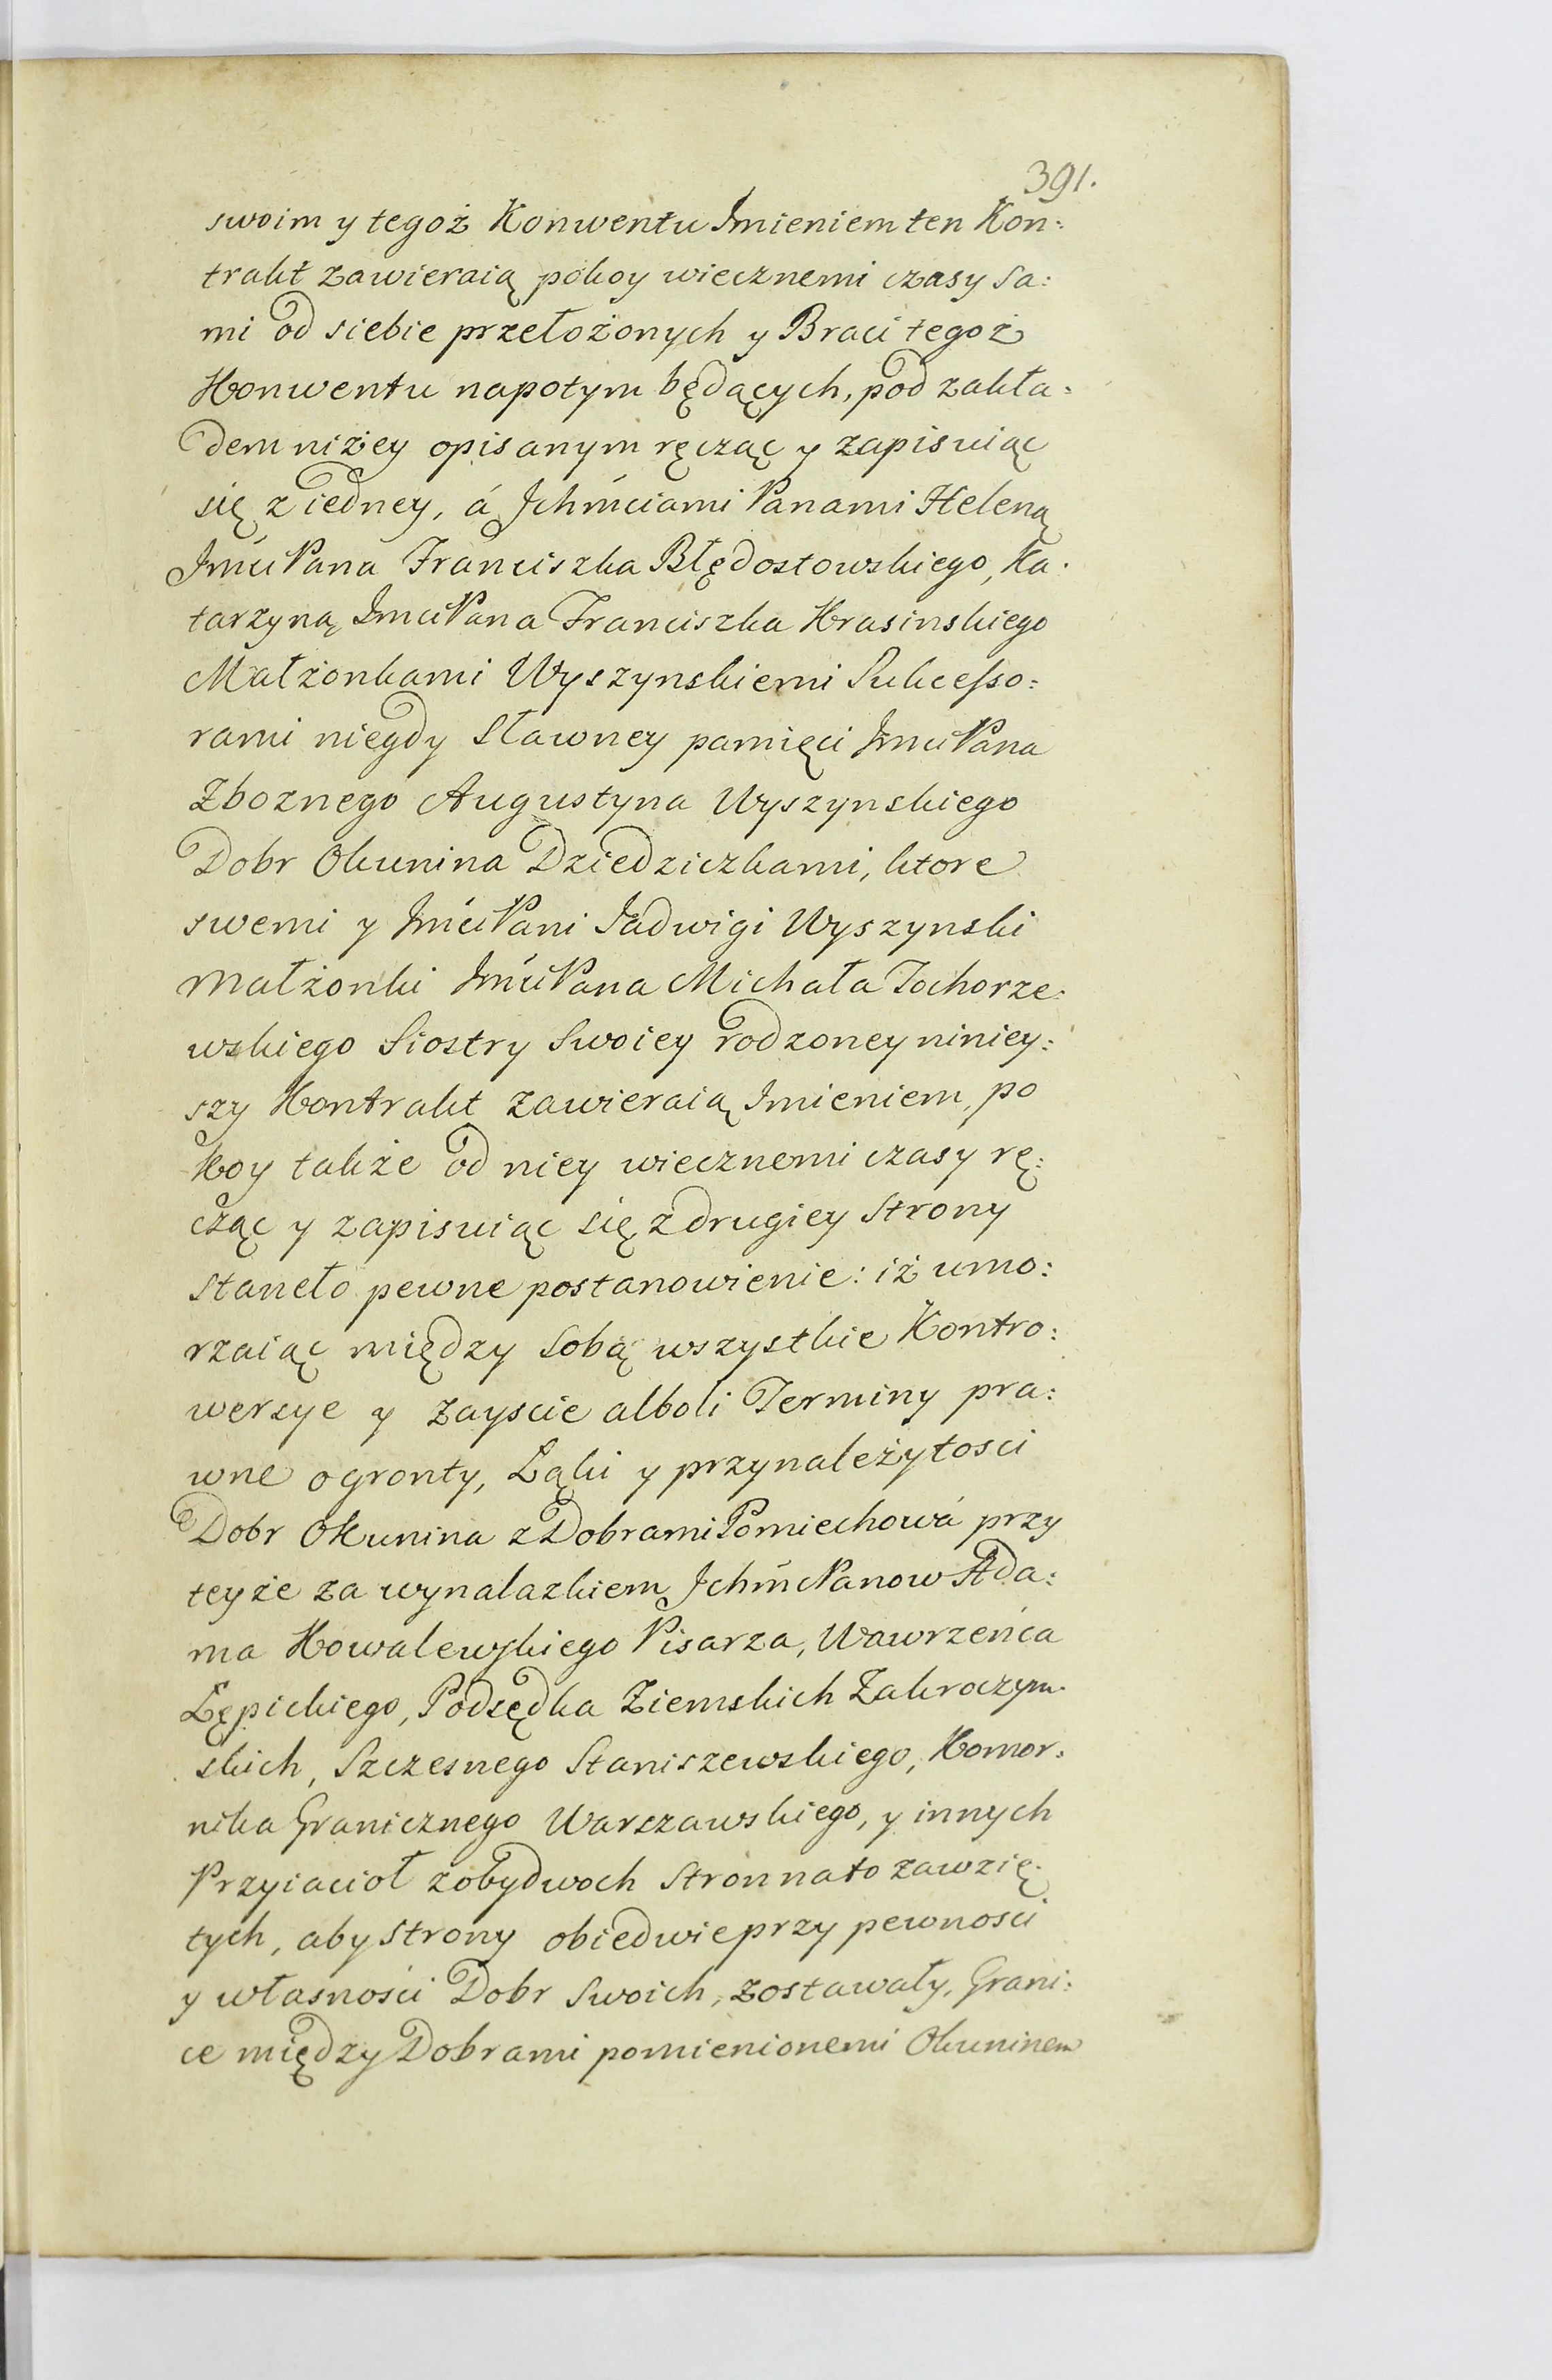 391.
swoim y tegoż Konwentu Imieniem ten Kon:
trakt zawieraią pokoy wiecznemi czasy sa:
mi od siebie przełożonych y Braci tegoż
Konwentu napotym będących, pod zakła:
dem niżey opisanym ręcząc y zapisuiąc
się z iedney, á Ichmciami Panami Heleną
Jmći Pana Franciszka Błędostowskiego, Ka:
tarzyną Jmci Pana Franciszka Krasinskiego
Małżonkami Wyszynskiemi Sukcesso:
rami niegdy Sławney pamięci Jmci Pana
Zboznego Augustyna Wyszynskiego
Dobr Okunina Dziedziczkami, ktore
swemi y Jmći Pani Jadwigi Wyszynski
Małżonki Jmći Pana Michała Tochorze:
wskiego Siostry Swoiey rodzoney niniey:
szy Kontrakt zawieraią Imieniem, po
koy także od niey wiecznemi czasy rę:
cząc y zapisuiąc się z drugiey Strony
Staneło pewne postanowienie: iż umo:
rzaiąc między Sobą wszystkie Kontro:
wersye y Zayscie alboli Terminy pra:
wne o gronty, Łąki y przynależytosci
Dobr Okunina z Dobrami Pomiechowá przy
teyże za wynalazkiem Ichmć Panow Ada:
ma Kowalewskiego Pisarza, Wawrzeńca
Łępickiego, Podsędka Ziemskich Zakroczym:
skich, Szczesnego Staniszewskiego, Komor:
nika Granicznego Warszawskiego, y innych
Przyiacioł z obydwoch Stron na to zawzię:
tych, aby Strony obiedwie przy pewnosci
y własnośći Dobr Swoich, zostawały, Grani:
ce między Dobrami pomienionemi Okuninem